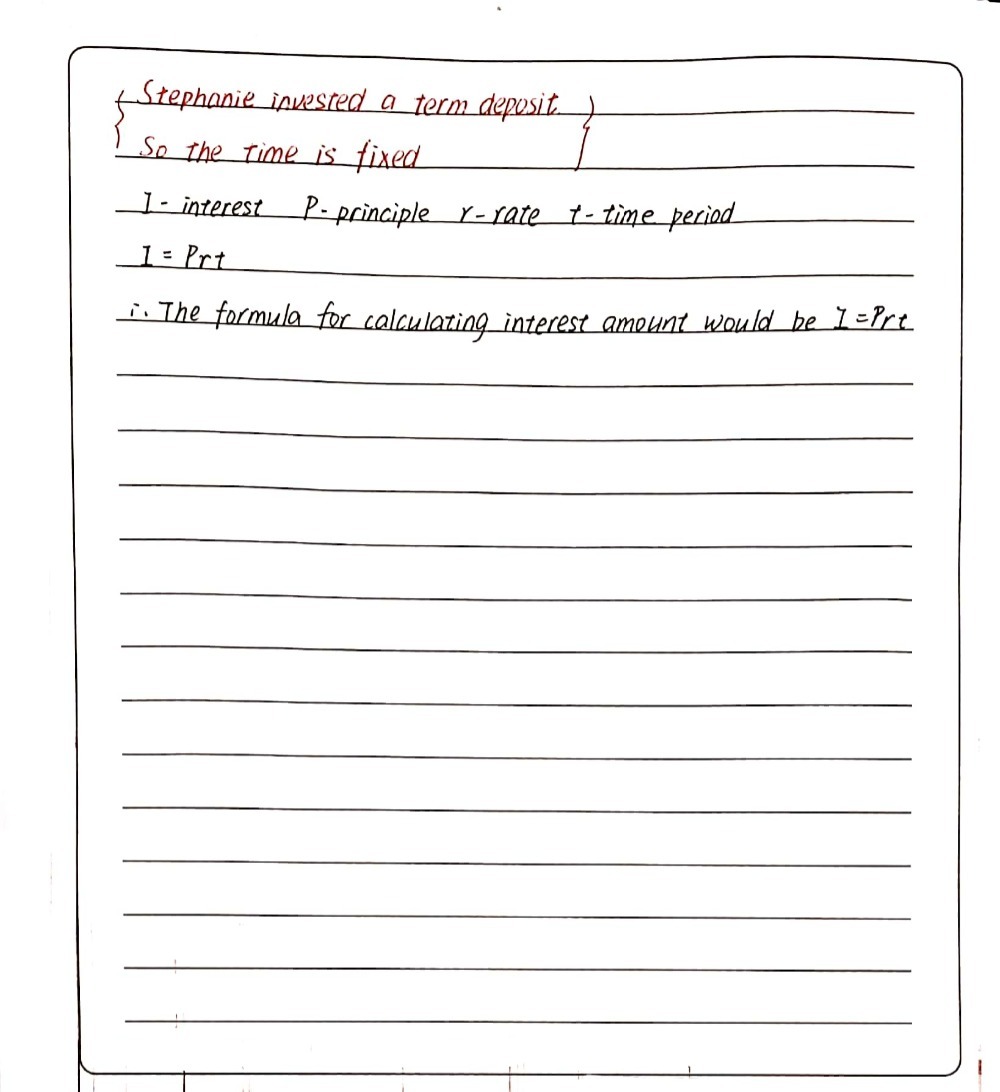 { Stephanie invested a term deposit }
{ So the time is fixed }
I - interest P - principle r - rate t - time period
I = Prt
∴ The formula for calculating interest amount would be I = Prt